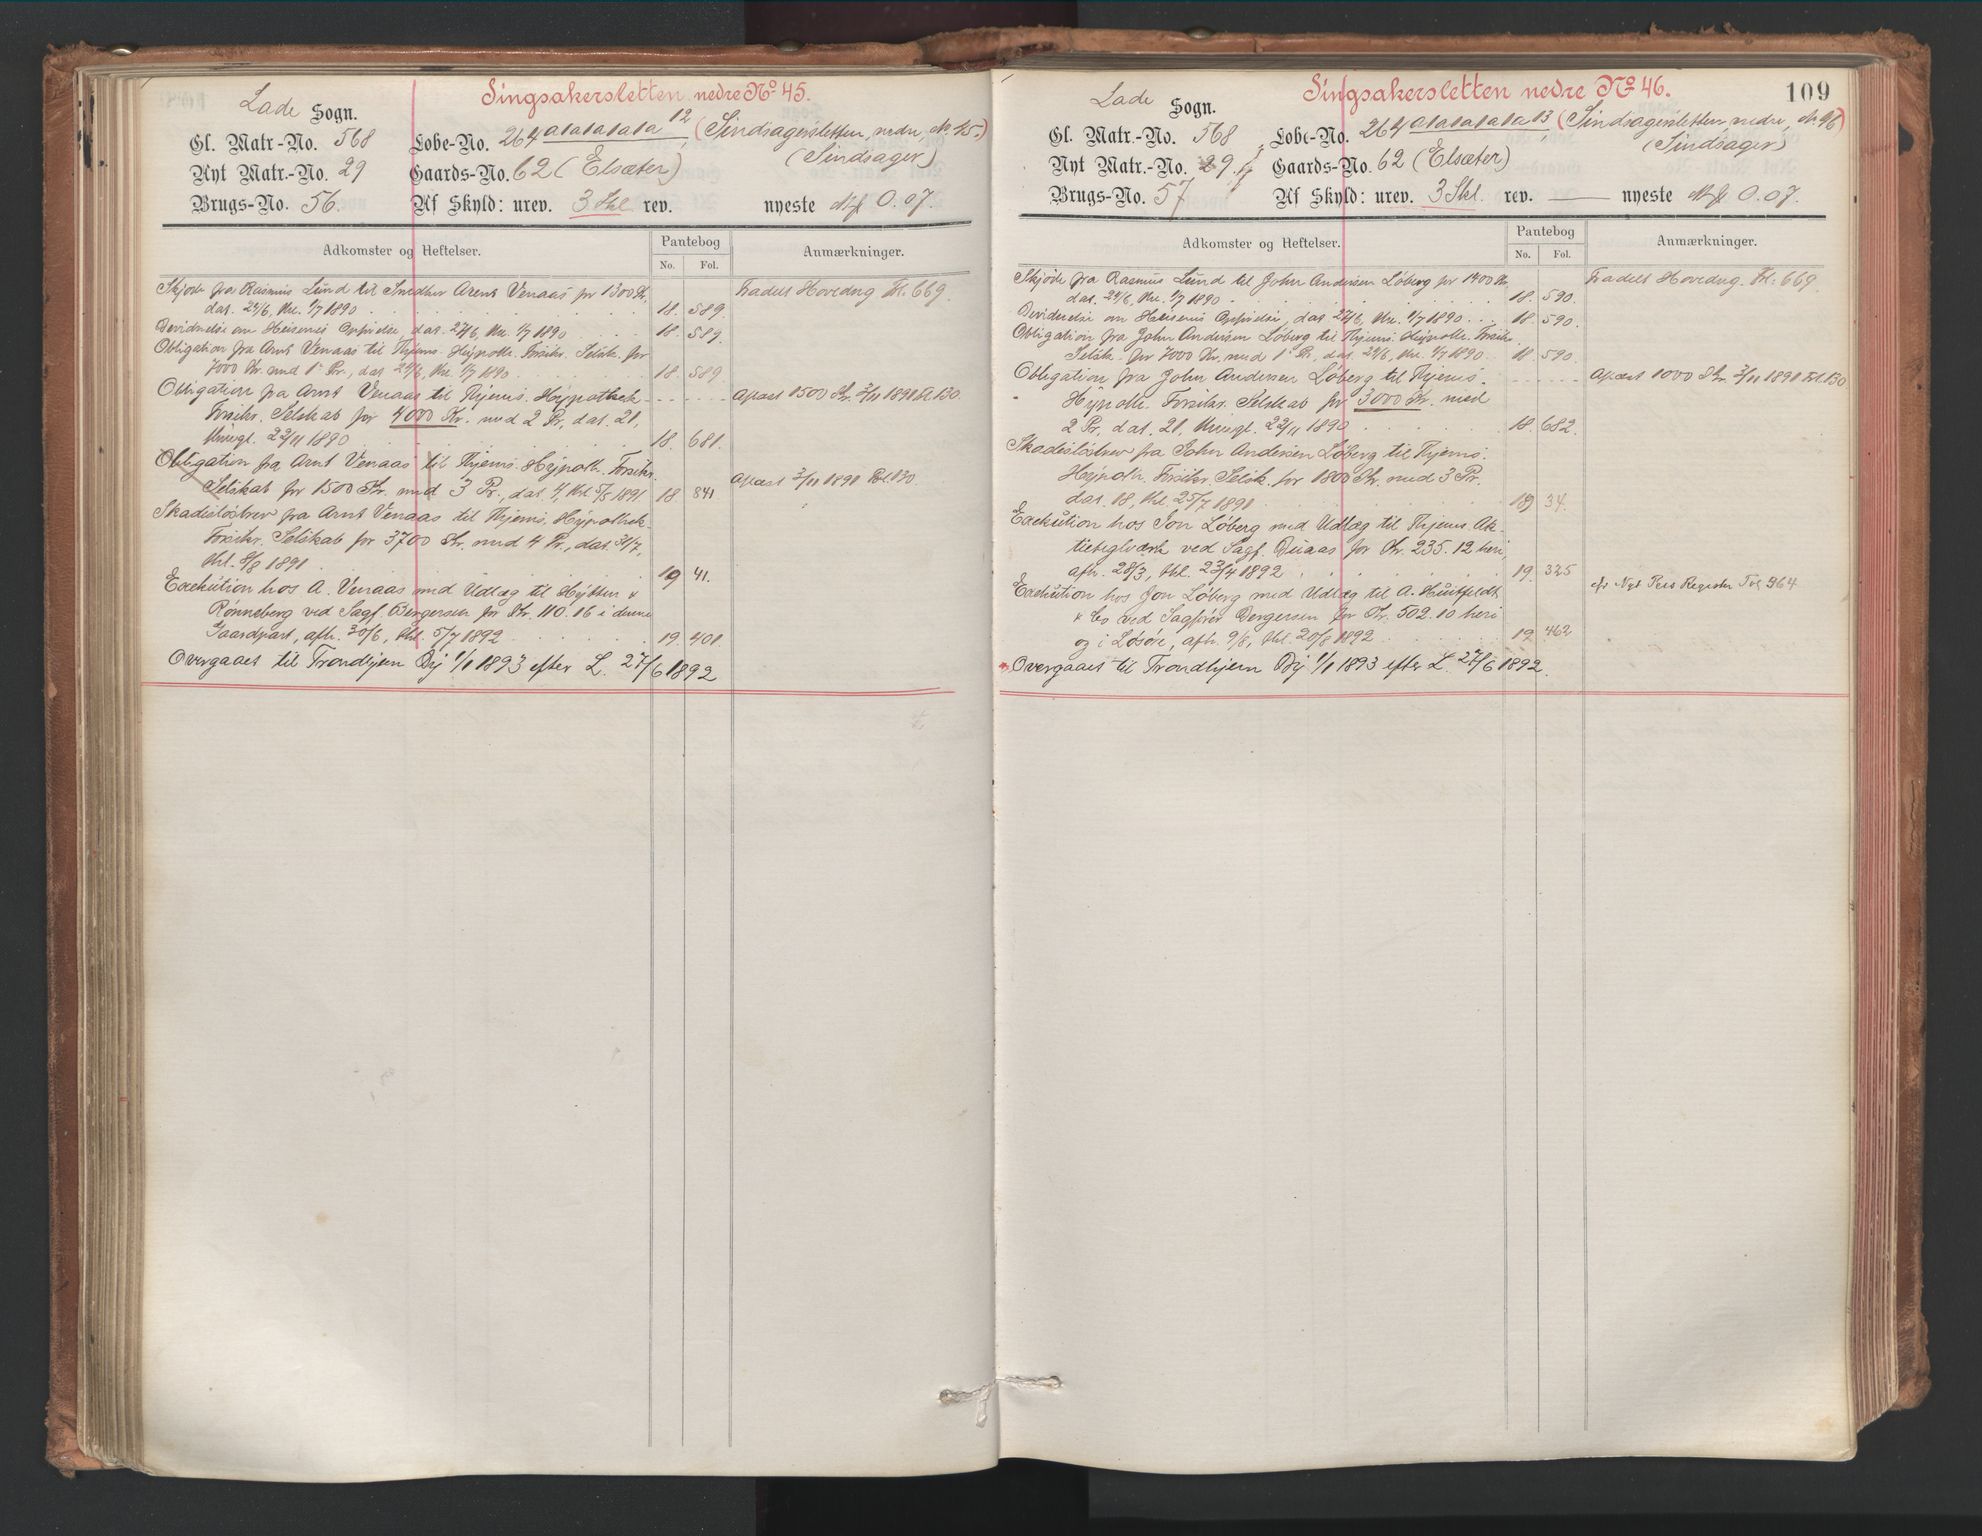 Singsakersletten nedre No 45.
Lade Sogn.
Gl. Matr.-No. 568 Løbe-No. 264 a1a1a1a1a1a 12 (Sindsagersletten, nedre, No. 45)
(Sindsager)
Nyt Matr.-No. 29 Gaards-No. 62 (Elsæter)
Brugs-No. 56. Af Skyld: urev. 3 Skl rev. nyeste Mk 0.07.
Adkomster og Heftelser. Pantebog Anmærkninger.
No. Fol.
Skjøde fra Rasmus Lund til Snedker Arent Venaas for 1300 Kr, Fradelt Hovedng Fl. 669.
dat. 24/6, 1/7 1890 18. 589.
om Heisems dat. 24/6, 1/7 1890 18. 589.
Obligation fra Arnt Venaas til Thjems. Hypoth. Forsikr. Selsk. for
7000 Kr. med 1' Pr., dat. 24/6, 1/7 1890 18. 589
Obligation fra Arnt Venaas til Thjems. Hypothek- Afkast 1500 Kr. 3/11 1891 Fl. 130.
Forsikr. Selskab for 4000 Kr. med 2 Pr, dat. 21,
thingl. 22/11 1890 18. 681.
Obligation fra Arnt Venaas til Thjems. Hypoth. Forsikr.
Selskab for 1500 Kr. med 3 Pr., dat. 4, thl 5/5 1891 18 841. 3/11 1891 Fl. 130.
Skadesløsbrev fra Arnt Venaas til Thjems. Hypothek-
Forsikr. Selskab for 3700 Kr. med 4 Pr., dat. 31/7,
thl. 8/8 1891 19 41.
Exekution hos A. Venaas med Udlæg til Hytten &
Rønneberg ved Sagf. Bergersen for Kr. 110.16 i denne
Gaardpart, afh. 30/6, thl. 5/7 1892 19. 401.
Overgaaet til Trondhjem By 1/1 1893 efter L. 27/6 1892
Singsakersletten nedre No 46.
109
Lade Sogn.
Gl. Matr.-No. 568 Løbe-No. 264 a1a1a1a1a1a 13 (Sindsagersletten, nedre, No. 46)
(Sindsager)
Nyt Matr.-No. 29 Gaards-No. 62 (Elsæter)
Brugs-No. 57 Af Skyld: urev. 3 Skl. rev. — nyeste Mk 0.07.
Adkomster og Heftelser. Pantebog Anmærkninger.
No. Fol.
Skjøde fra Rasmus Lund til John Andersen Løberg for 1400 Kr, Fradelt Hovedng. Fl. 669
dat. 24/6, 1/7 1890 18. 590.
om Heisems dat. 24/6, 1/7 1890 18. 590.
Obligation fra John Andersen Løberg til Thjems. Hypoth. Forsikr.
Selsk. for 7000 Kr. med 1' Pr., dat. 24/6, 1/7 1890 18. 590.
Obligation fra John Andersen Løberg til Thjems. Afkast 1000 Kr. 3/11 1891 Fl. 130
Hypoth. Forsikr. Selskab for 3000 Kr. med
2 Pr, dat. 21, thingl. 22/11 1890 18. 682.
Skadesløsbrev fra John Andersen Løberg til Thjems.
Hypoth. Forsikr Selsk. for 1800 Kr. med 3 Pr.
dat. 18, thl 25/7 1891 19 34.
Exekution hos Jon Løberg med Udlæg til Thjems Ak-
tieteglværk ved Sagf. Buaas for Kr. 235.12 heri,
afh. 28/3, thl. 23/4 1892 19. 325
Exekution hos Jon Løberg med Udlæg til A. Huitfeldt cfr Nyt Reg Register Fol 564
& Co ved Sagfører Bergersen for Kr. 502.10 heri
og i Løsøre, afh. 9/8, thl. 20/8 1892 19 462
Overgaaet til Trondhjem By 1/1 1893 efter L. 27/6 1892.